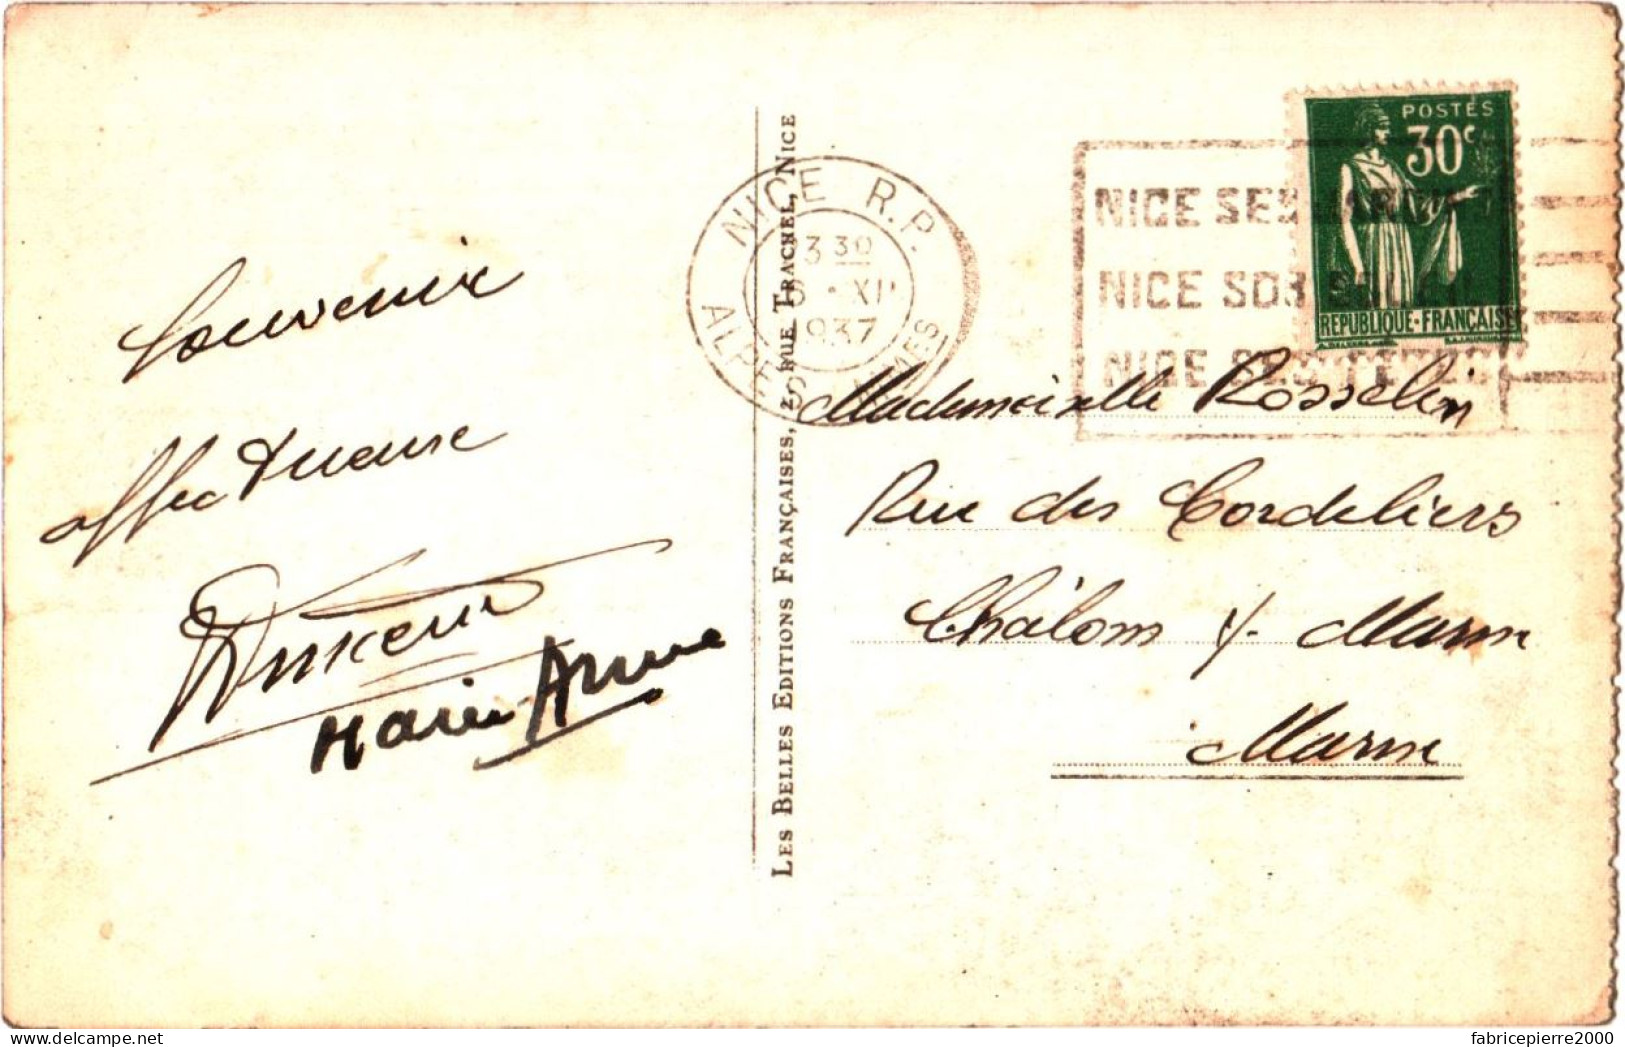 Souvenir
affectueuse
Marie Anne
LES BELLES EDITIONS FRANÇAISES, 20 RUE TRACHEL, NICE
NICE R.P.
3 30
XI
1937
ALPES MMES
NICE SES
NICE SON SOLEIL
NICE SES FETES
POSTES
30c
REPUBLIQUE·FRANÇAISE
Mademoiselle Rosselin
Rue des Cordeliers
Châlons s/. Marne
Marne
fabricepierre2000